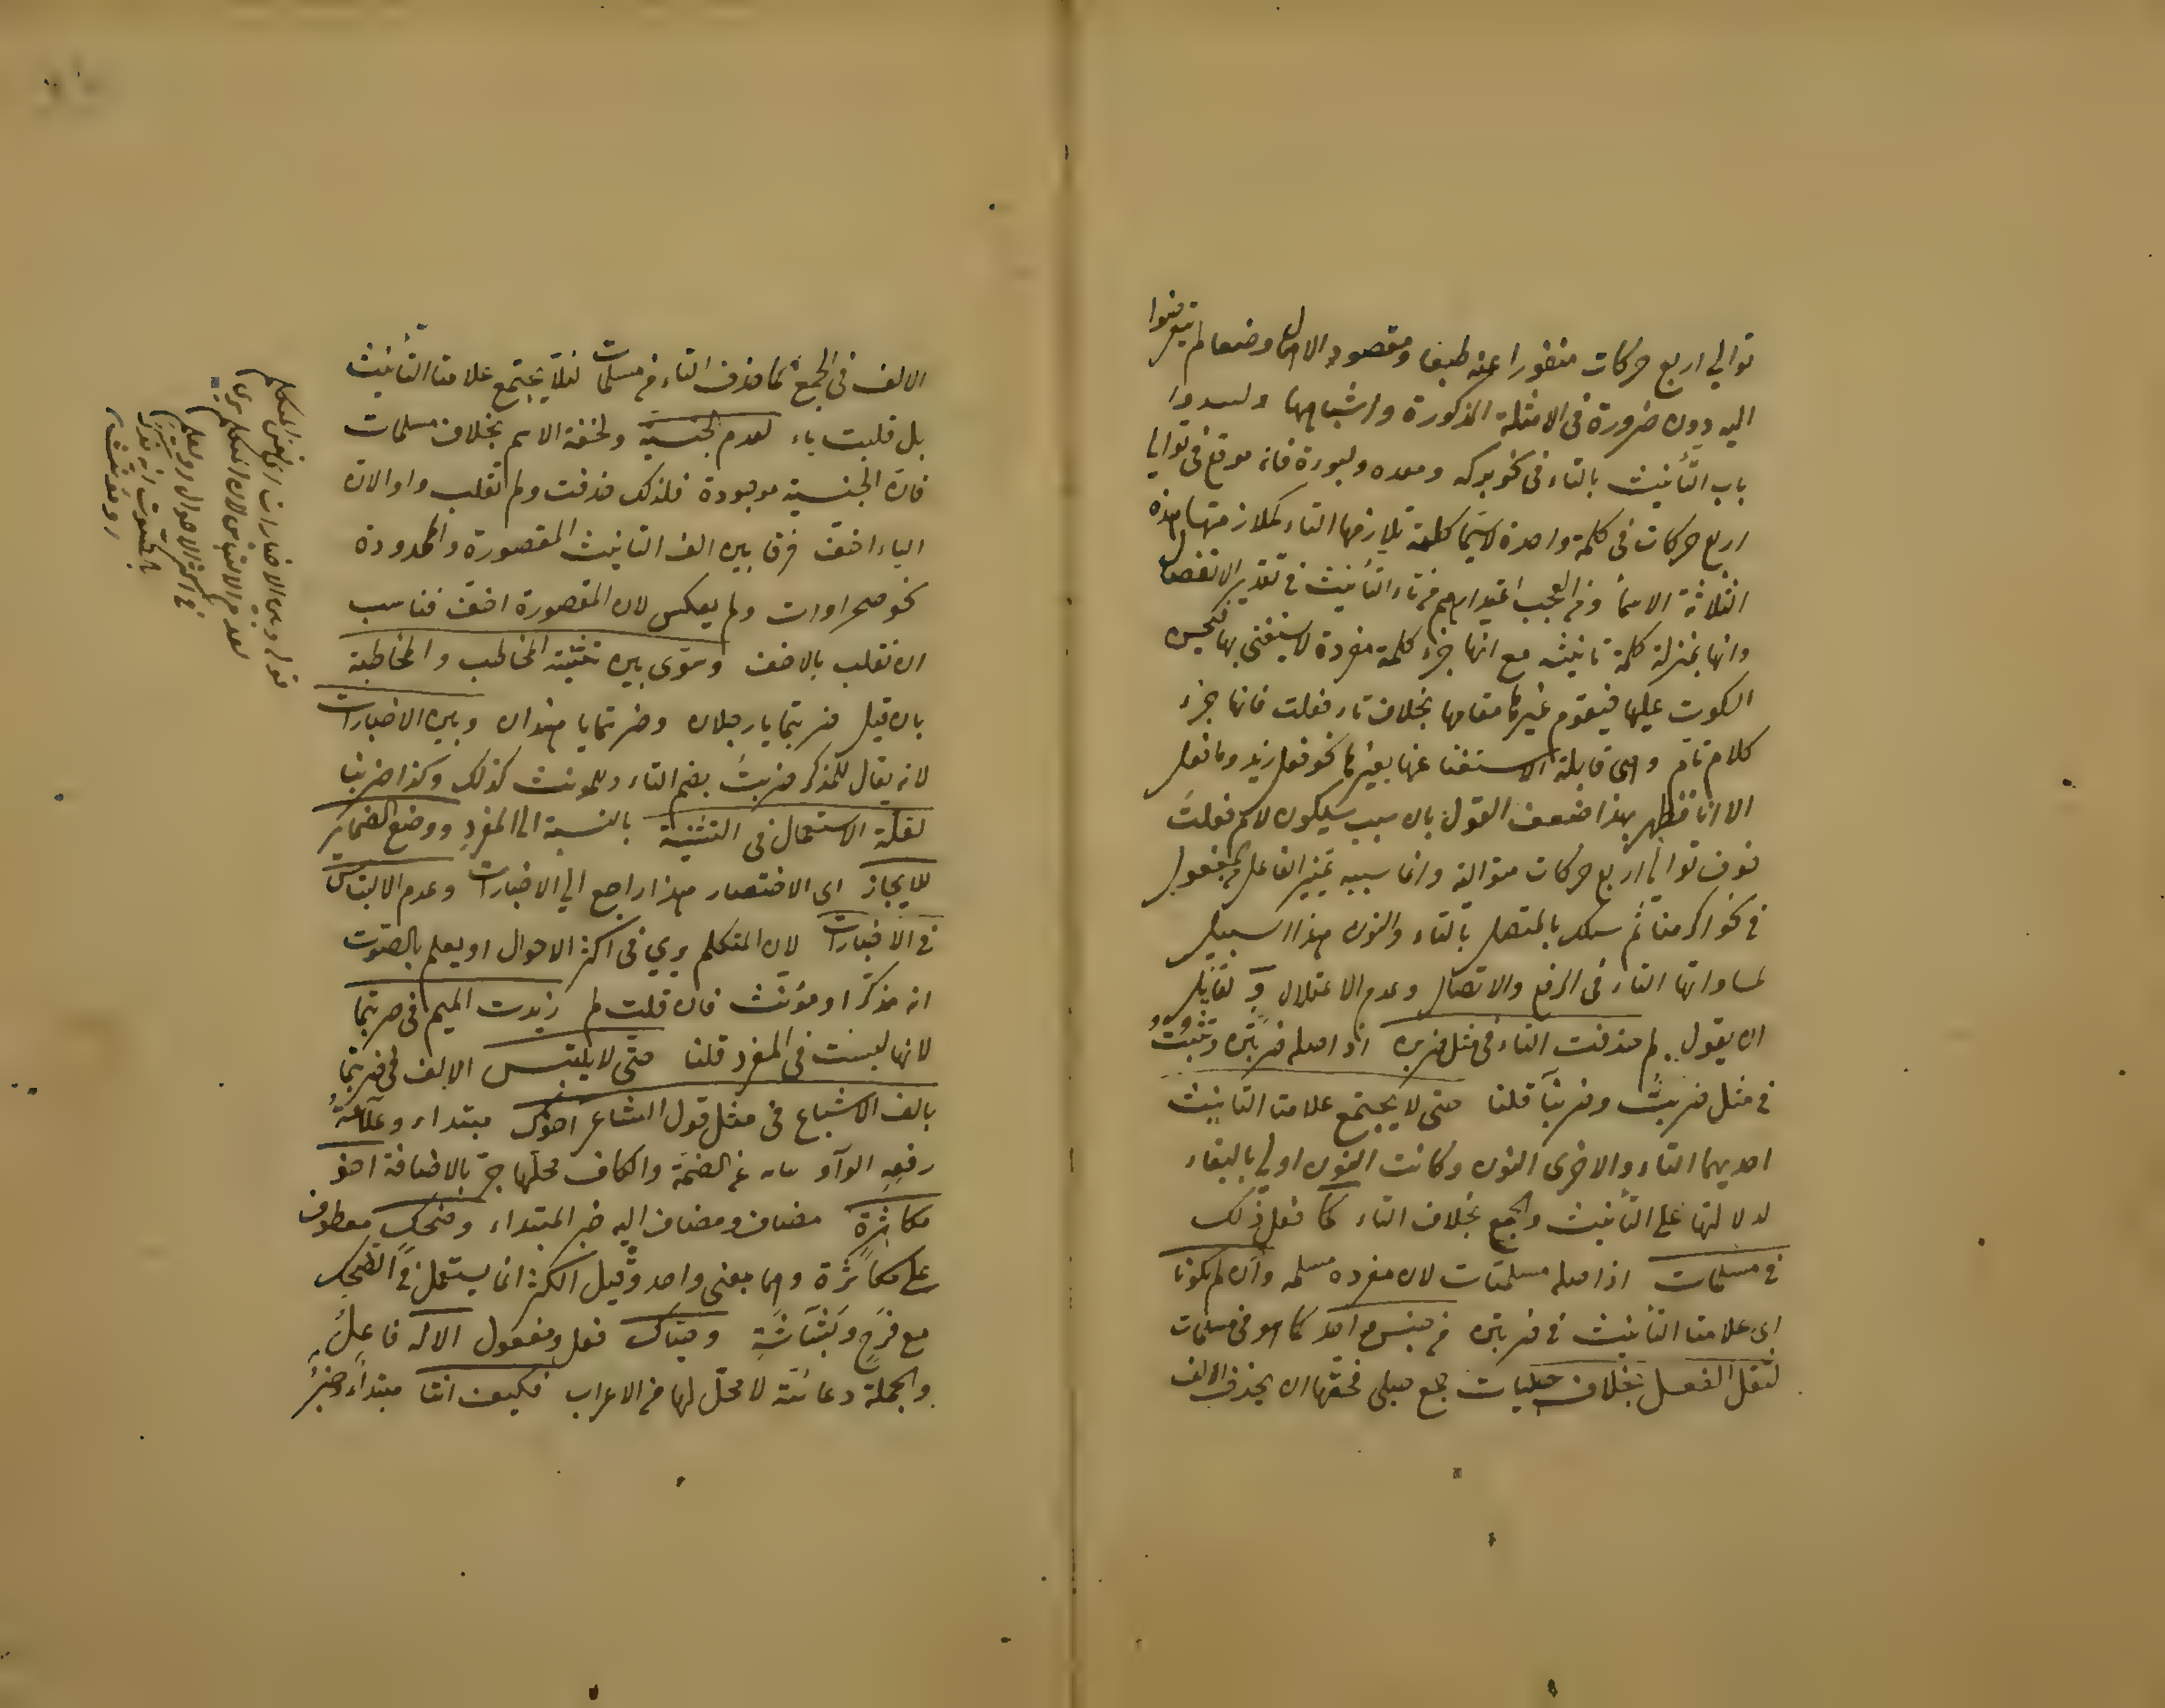 توالي اربع حركات منفورا عنه طبعا ومقصود الاهمال وضعا لم يتعرضوا
اليه دون ضرورة في الامثلة المذكورة واشباهها ولسدوا
باب التأنيث بالتاء في نحو بركه ومعده ولبورة فانه موقع في توالي
اربع حركات في كلمة واحدة لاسيما كلمة تلازمها التاء كملازمتها هذه
الثلاثة الاسماء ومن العجب اعتدادهم من تاء التأنيث في تقدير الانفصال
وانها بمنزلة كلمة ثانية مع انها جزء كلمة مفردة لا يستغنى بها فيحسن
السكوت عليها فيقوم غيرها مقامها بخلاف تاء فعلت فانها جزء
كلام تام وهي قابلة الاستغناء عنها بغيرها نحو فعل زيد وما فعل
الا انا فظهر بهذا ضعف القول بان سبب سكون لام فعلت
خوف توالي اربع حركات متوالية وانما سببه تمييز الفاعل من المفعول
في نحو اكرمنا ثم سلك بالمتصل بالتاء والنون هذا السبيل
لمساواتها التاء في الرفع والاتصال وعدم الاعتلال ولقائل
ان يقول لم حذفت التاء في مثل ضربن اذ اصله ضربتن وتثبت
في مثل ضربت وضربنا قلنا حتى لا يجتمع علامتا التأنيث
احديهما التاء والاخرى النون وكانت النون اولى بالبقاء
لدلالتها على التأنيث والجمع بخلاف التاء كما فعل ذلك
في مسلمات اذ اصله مسلمتات لان مفرده مسلمه وان لم تكونا
اي علامتا التأنيث في ضربتن من جنس واحد كما هو في مسلمات
لثقل الفعل بخلاف حبليات جمع حبلى فحقها ان يحذف الالف
الالف في الجمع كما حذف التاء من مسلمات لئلا يجتمع علامتا التأنيث
بل قلبت ياء لعدم الجنسية ولخفة الاسم بخلاف مسلمات
فان الجنسية موجودة فلذلك حذفت ولم تقلب واوا لان
الياء اخف فرقا بين الف التأنيث المقصورة والممدودة
نحو صحراوات ولم يعكس لان المقصورة اخف فناسب
ان تقلب بالاخف وسوى بين تثنية المخاطب والمخاطبة
بان قيل ضربتما يا رجلان وضربتما يا هندان وبين الاخبارات
لانه يقال للمذكر ضربت بضم التاء وللمونث كذلك وكذا ضربنا
لقلة الاستعمال في التثنية بالنسبة الى المفرد ووضع الضمائر
للايجاز اى الاختصار هذا راجع الي الاخبارات وعدم الالتباس
في الاخبارات لان المتكلم يرى في اكثر الاحوال او يعلم بالصوت
انه مذكر او مؤنث فان قلت لم زيدت الميم في ضربتما
لانها ليست في المفرد قلنا حتى لا يلتبس الالف في ضربتما
بالف الاشباع في مثل قول الشاعر اخوك مبتداء وعلامة
رفعه الواو عن الضمة والكاف محلها جر بالاضافة اخو
مكاشرة مضاف ومضاف اليه خبر المبتداء وضحك معطوف
على مكاشرة وهما بمعنى واحد وقيل الكشر انما يستعمل في الضحك
مع فرح وبشاشة وحياك فعل ومفعول الاله فاعل
والجملة دعائية لا محل لها من الاعراب فكيف انتا مبتداء وخبر
قوله وبين الاخبارات اى نفس المتكلم
لعدم الالتباس لان المتكلم يرى
في اكثر الاحوال او يعلم
بالصوت انه مذكر
او مونث